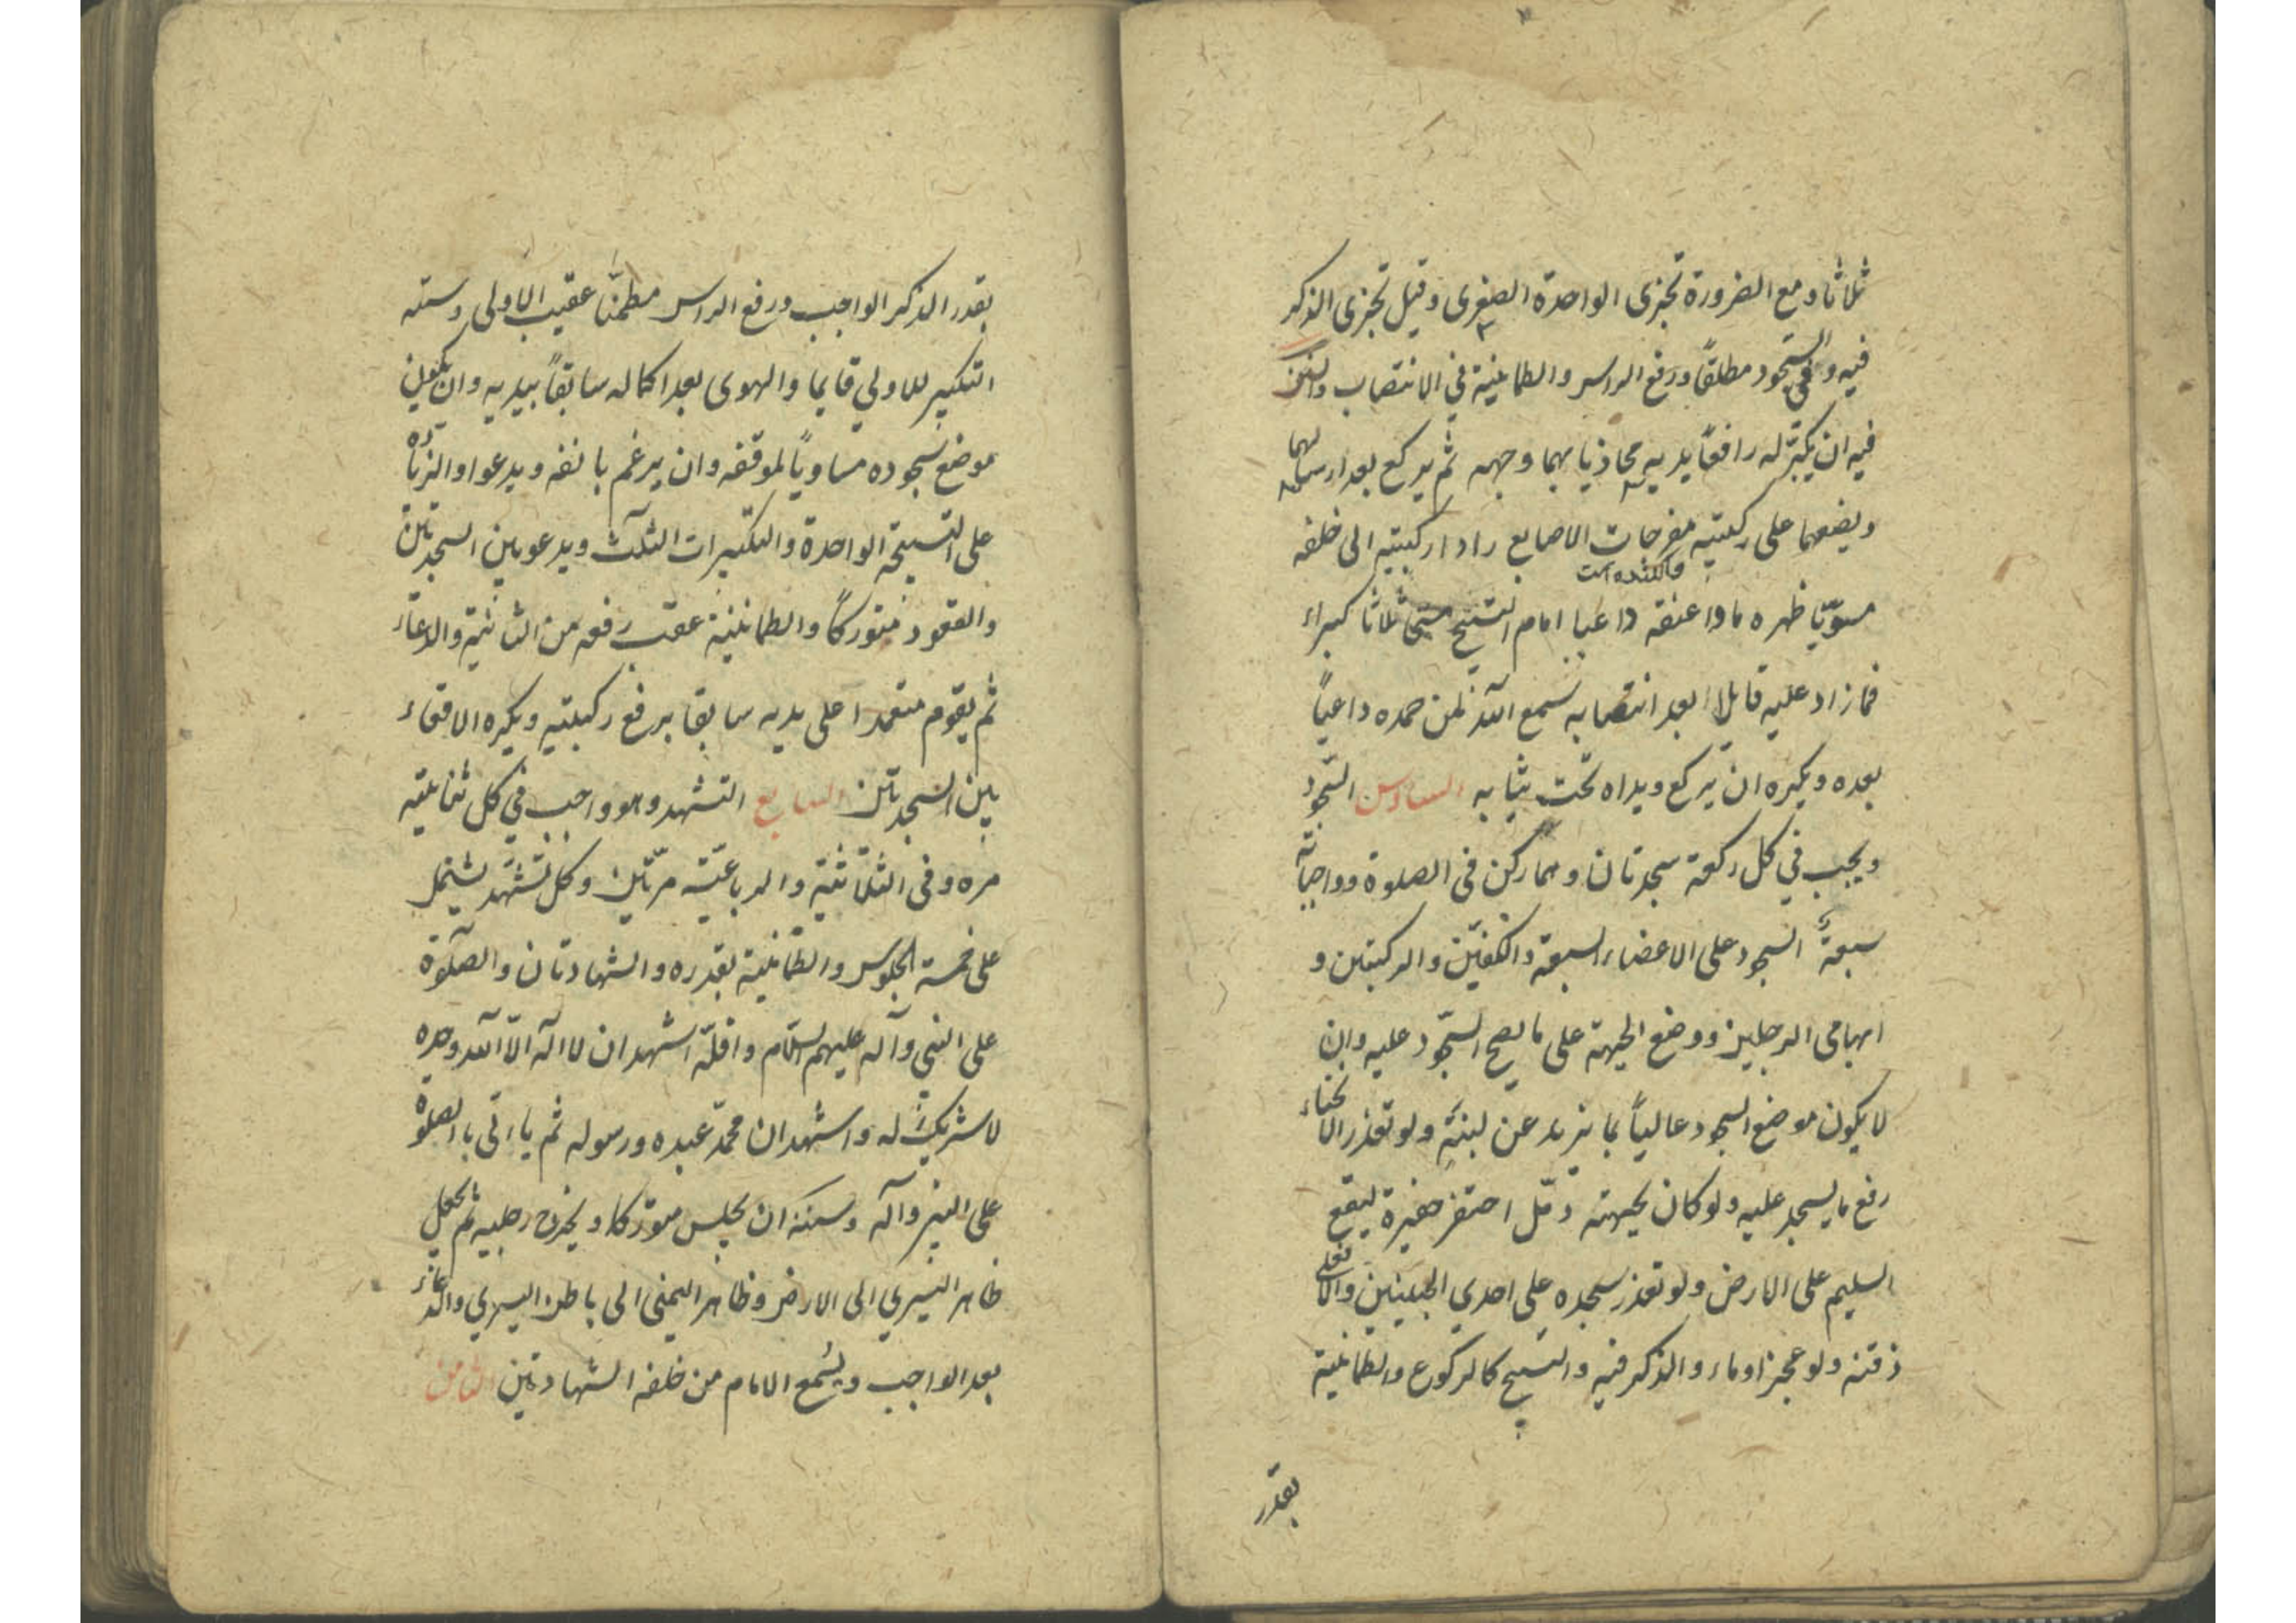 ثلاثا و مع الضرورة تجزی الواحدة الصغری و قیل تجزی الذکر
فیه و فی السجود مطلقاً و رفع الراس و الطمانینة فی الانتصاب والسنن
فیه ان یکبّر له رافعاً یدیه محاذیا بهما وجهه ثم یرکع بعد ارسالهما
و یضعهما علی رکبتیه مفرجات الاصابع رادا رکبتیه الی خلفه
مسوّیا ظهره مادا عنقه داعیا امام التسبیح مسبحا ثلاثا کبراء
فما زاد علیه قایلا بعد انتصابه سمع الله لمن حمده داعیاً
بعده و یکره ان یرکع و یداه تحت ثیابه السادس السّجود
و یجب فی کل رکعة سجدتان و هما رکن فی الصلوة و واجباته
سبعةٌ السجود علی الاعضاء السبعة و الکفّین و الرکبتین و
ابهامی الرجلین و وضع الجبهة علی ما یصح السّجود علیه و ان
لا یکون موضع السجود عالیاً بما یزید عن لبنَة و لو تعذر الانحناء
رفع ما یسجد علیه و لو کان بجبهته دمّل احتفر حفیرة لیقع
السلیم علی الارض و لو تعذر سجده علی احدی الجبینین و الا فعلی
ذقنه و لو عجز اوماء و الذکر فیه و التسبیح کالرکوع و الطمانینة
بقدر
بقدر الذکر الواجب و رفع الراس مطمئنّا عقیب الاولی و سننه
التکبیر للاولی قایما و الهوی بعد اکماله سابقاً بیدیه و ان یکون
موضع سجوده مساویاً لموقفه و ان یرغم بانفه و یدعوا و الزیادة
علی التسبیحة الواحدة و التکبیرات الثلث و یدعو بین السجدتین
و القعود متورکاً و الطمانینة عقیب رفعه من الثانیة و الدعاء
ثم یقوم متعمدا علی یدیه سابقا برفع رکبتیه و یکره الاقعاء
بین السجدتین السابع التشهد و هو واجب فی کل ثنائیة
مره و فی الثلاثیة و الرباعیّة مرّتین و کل تشهّد یشتمل
علی خمسة الجلوس و الطمانینة بقدره و الشهادتان و الصلوة
علی النبی و آله علیهم السلام و اقلّه اشهد ان لا اله الّا الله وحده
لا شریک له و اشهد ان محمّد عبده و رسوله ثم یاتی بالصلوة
علی النبی و آله و سننه ان یجلس متورّکا و یخرج رجلیه ثم یجعل
ظاهر الیسری الی الارض و ظاهر الیمنی الی باطن الیسری و الدعاء
بعد الواجب و یُسمع الامام من خلفه الشهادتین الثامن